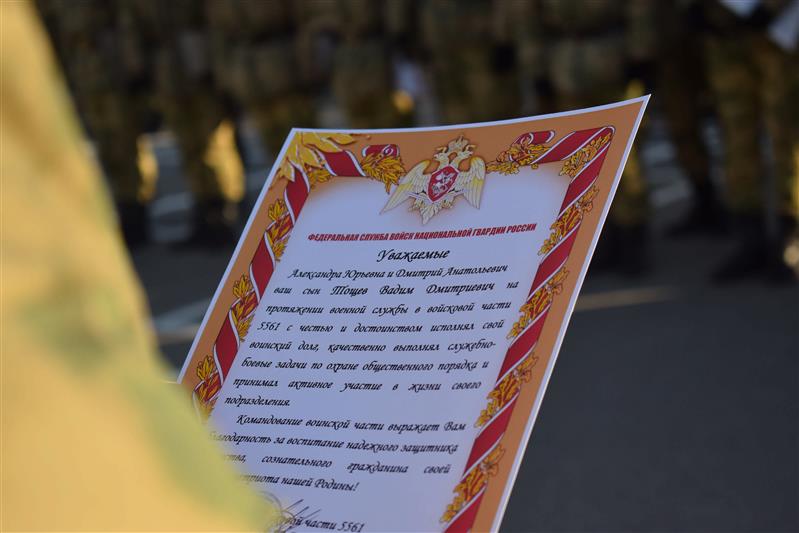 ФЕДЕРАЛЬНАЯ СЛУЖБА ВОЙСК НАЦИОНАЛЬНОЙ ГВАРДИИ РОССИИ
Уважаемые
Александра Юрьевна и Дмитрий Анатольевич
ваш сын Тощев Вадим Дмитриевич на
протяжении военной службы в войсковой части
5561 с честью и достоинством исполнял свой
воинский долг, качественно выполнял служебно-
боевые задачи по охране общественного порядка и
принимал активное участие в жизни своего
подразделения.
Командование воинской части выражает Вам
благодарность за воспитание надежного защитника
сознательного гражданина своей
нашей Родины!
части 5561